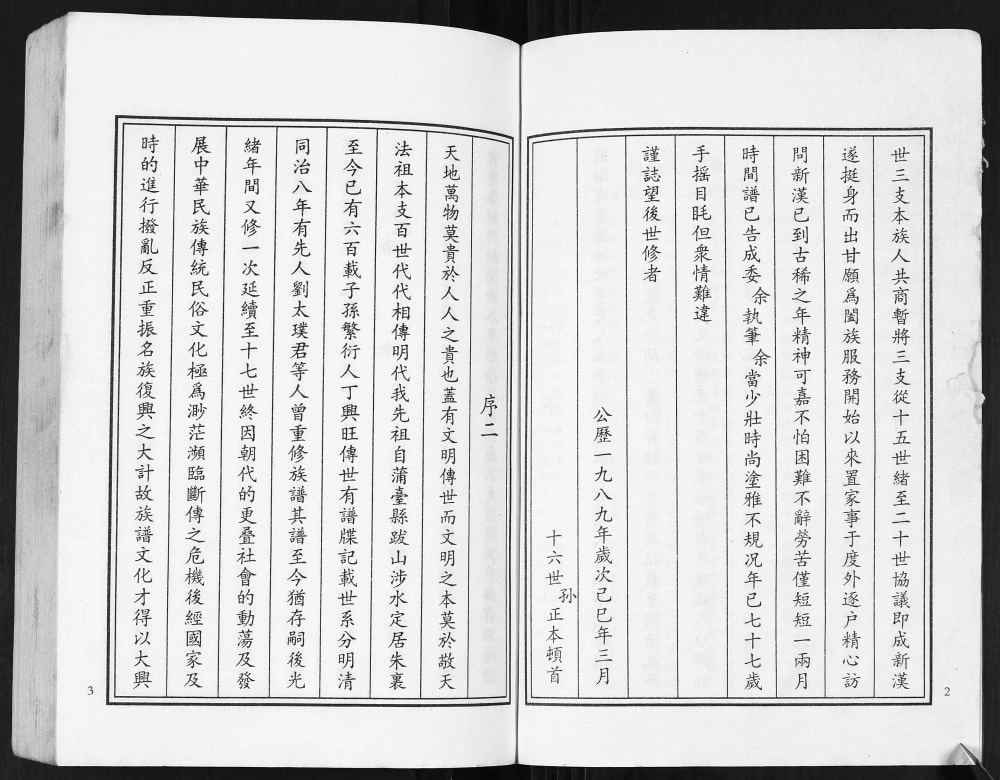 世三支本族人共商暫將三支從十五世緒至二十世協議即成新漢
遂挺身而出甘願爲闔族服務開始以來置家事于度外逐户精心訪
問新漢已到古稀之年精神可嘉不怕困難不辭勞苦僅短短一兩月
時間譜已告成委余執筆余當少壯時尚塗雅不規况年已七十七歲
手摇目眊但衆情難違
謹誌望後世修者
公歷一九八九年歲次己巳年三月
十六世孙正本頓首
2
序二
天地萬物莫貴於人人之貴也蓋有文明傳世而文明之本莫於敬天
法祖本支百世代代相傳明代我先祖自蒲臺縣跋山涉水定居朱裏
至今已有六百載子孫繁衍人丁興旺傳世有譜牒記載世系分明清
同治八年有先人劉太璞君等人曾重修族譜其譜至今猶存嗣後光
緒年間又修一次延續至十七世終因朝代的更叠社會的動蕩及發
展中華民族傳統民俗文化極爲渺茫瀕臨斷傳之危機後經國家及
時的進行撥亂反正重振名族復興之大計故族譜文化才得以大興
3